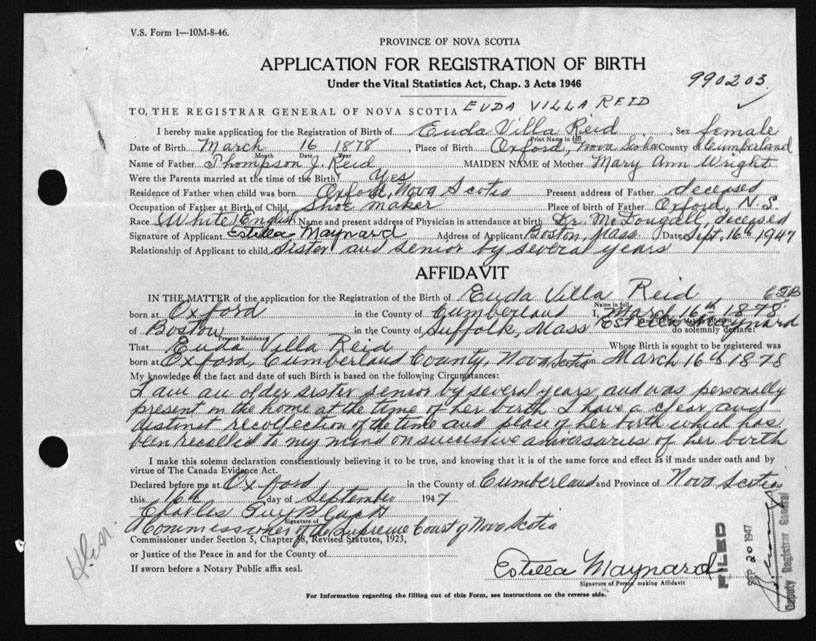 V.S. Form 1—10M-8-46.
PROVINCE OF NOVA SCOTIA
APPLICATION FOR REGISTRATION OF BIRTH
Under the Vital Statistics Act, Chap. 3 Acts 1946
990203
TO, THE REGISTRAR GENERAL OF NOVA SCOTIA EUDA VILLA REID
I hereby make application for the Registration of Birth of Euda Villa Reid, Sex female
Print Name in full
Date of Birth March 16 1878, Place of Birth Oxford, Nova Scotia County of Cumberland
Month Day Year
Name of Father Thompson J. Reid MAIDEN NAME of Mother Mary Ann Wright
Were the Parents married at the time of the Birth? Yes
Residence of Father when child was born Oxford, Nova Scotia Present address of Father deceased
Occupation of Father at Birth of Child, Shoe maker Place of birth of Father Oxford, N.S.
Race White English Name and present address of Physician in attendance at birth Dr. McDougall, deceased
Signature of Applicant Estella Maynard Address of Applicant Boston, Mass. Date Sept. 16th 1947
Relationship of Applicant to child Sister and senior by several years
AFFIDAVIT
IN THE MATTER of the application for the Registration of the Birth of Euda Villa Reid
Name in full
born at Oxford in the County of Cumberland I, March 16th 1878
of Boston in the County of Suffolk, Mass Estella Maynard do solemnly declare:
Present Residence
That Euda Villa Reid Whose Birth is sought to be registered was
born at Oxford, Cumberland County, Nova Scotia on March 16th 1878
My knowledge of the fact and date of such Birth is based on the following Circumstances:
I am an older sister senior by several years and was personally
present in the home at the time of her birth I have a clear and
distinct recollection of the time and place of her birth which has
been recalled to my mind on successive aniversaries of her birth
I make this solemn declaration conscientiously believing it to be true, and knowing that it is of the same force and effect as if made under oath and by
virtue of The Canada Evidence Act.
Declared before me at Oxford in the County of Cumberland and Province of Nova Scotia
this 16th day of September 1947
Charles Guy Black
Signature of
A Commissioner of the Supreme Court of Nova Scotia
Commissioner under Section 5, Chapter 58, Revised Statutes, 1923,
or Justice of the Peace in and for the County of
If sworn before a Notary Public affix seal.
Estella Maynard
Signature of Person making Affidavit
FILED
SEP 20 1947
Deputy Registrar General
For Information regarding the filling out of this Form, see instructions on the reverse side.